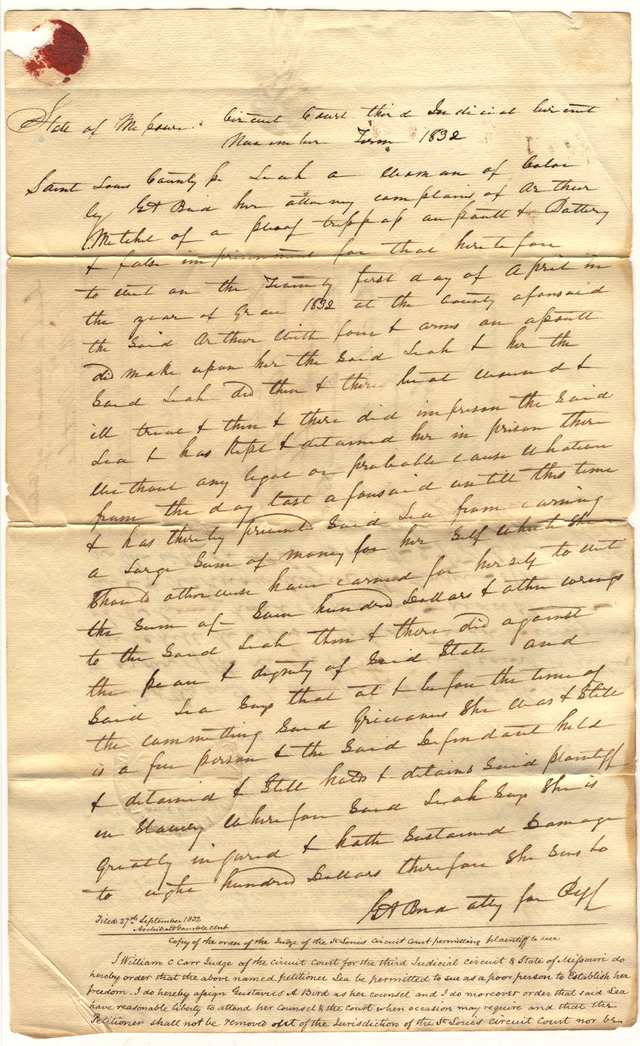 State of Missouri Circuit Court third Judicial Circuit
November Term 1832
Saint Louis County ss Leah a woman of Color
by GA Bird her attorney complains of Arthur
Mitchel of a plea of trespass an assault & Battery
& false imprisonment for that heretofore
to wit on the Twenty first day of April in
the year of Grace 1832 at the County aforesaid
the said Arthur with force & arms an assault
did make upon her the said Leah & her the
Said Leah did then & there beat wound &
ill treat & then & there did imprison the said
Lea & has kept & detained her in prison there
without any legal or probable cause whatever
from the day last aforesaid untill this time
& has thereby prevented Said Lea from earning
a large sum of money for her self which she
should otherwise have earned for herself to wit
the sum of hundred Dollars & other wrongs
to the Said Leah then & there did against
the peace & dignity of Said State and
Said Lea Says that at & before the time of
the committing Said Grievances She was & Still
is a free person & the Said Defendant held
& detained & Still holds & detains Said plaintiff
in Slavery Wherefore Said Leah Says She is
Greatly injured & hath Sustained Damage
to eight hundred Dollars therefore She Sues to
GA Bird atty for Plff
Filed 27th September 1832
Archibald Gamble clerk
Copy of the order of the Judge of the St Louis Circuit Court permitting plaintiff to sue
I William C Carr Judge of the circuit Court for the third Judicial circuit & State of Missouri do
hereby order that the above named petitioner Lea be permitted to sue as a poor person to Establish her
freedom. I do hereby assign Gustavus A Bird as her counsel and I do moreover order that said Lea
have reasonable liberty to attend her counsel & the court when occasion may require and that the
Petitioner shall not be removed out of the Jurisdiction of the St Louis circuit Court nor be